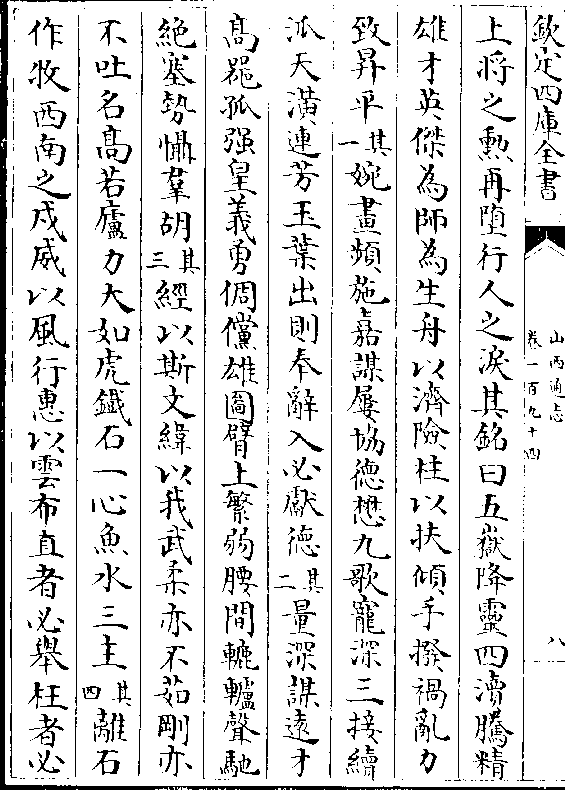 欽定四庫全書
山西通志
卷一百九十四
八
上將之勲再墮行人之淚其銘曰五嶽降靈四瀆騰精
雄才英傑為師為生舟以濟險柱以扶傾手撥禍亂力
致昇平其一婉畫頻施嘉謀屢協德懋九歌寵深三接續
派天潢連芳玉葉出則奉辭入必獻德其二量深謀遠才
髙器孤强皇義勇倜儻雄圖臂上繁弱腰間轆轤聲馳
絶塞勢懾羣胡其三經以斯文緯以我武柔亦不茹剛亦
不吐名髙若廬力大如虎鐵石一心魚水三主其四離石
作牧西南之戍威以風行惠以雲布直者必舉枉者必